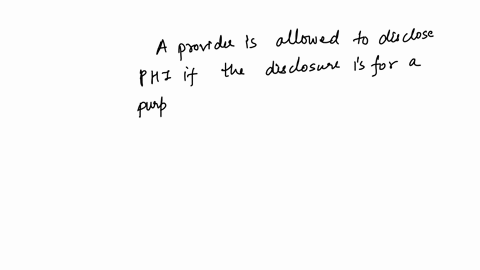 A provider is allowed to disclose
PHI if the disclosure is for a
purp